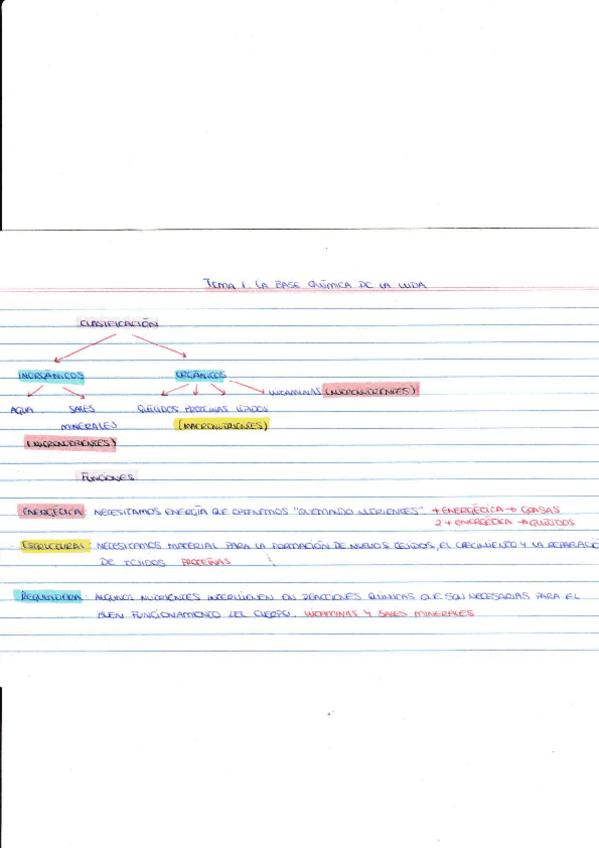 TEMA 1. LA BASE QUÍMICA DE LA VIDA
CLASIFICACIÓN
INORGÁNICOS ORGÁNICOS
VITAMINAS (MICRONUTRIENTES)
AGUA SALES GLÚCIDOS PROTEÍNAS LÍPIDOS
MINERALES (MACRONUTRIENTES)
(MICRONUTRIENTES)
FUNCIONES
ENERGÉTICA: NECESITAMOS ENERGÍA QUE OBTENEMOS "QUEMANDO NUTRIENTES". + ENERGÉTICA → GRASAS
2º + ENERGÉTICA → GLÚCIDOS
ESTRUCTURAL: NECESITAMOS MATERIAL PARA LA FORMACIÓN DE NUEVOS TEJIDOS, EL CRECIMIENTO Y LA REPARACIÓ
DE TEJIDOS PROTEÍNAS
REGULADORA: ALGUNOS NUTRIENTES INTERVIENEN EN REACCIONES QUÍMICAS QUE SON NECESARIAS PARA EL
BUEN FUNCIONAMIENTO DEL CUERPO. VITAMINAS Y SALES MINERALES